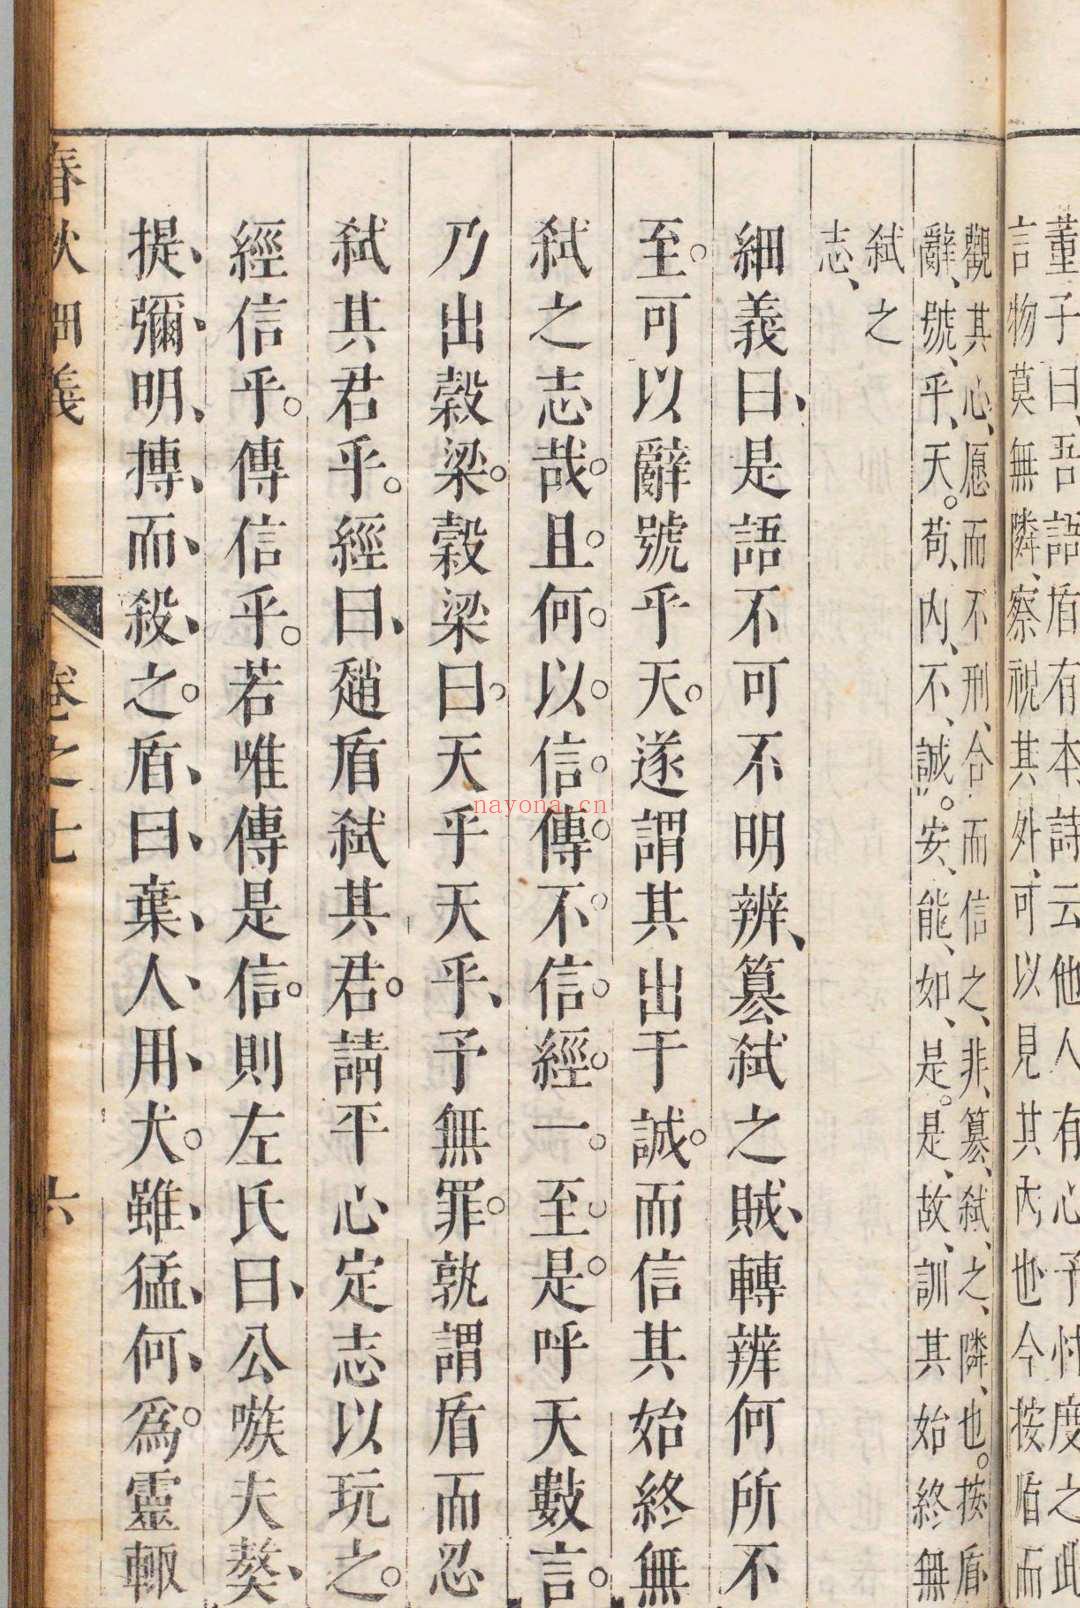 董子曰吾語盾有本詩云他人有心予忖度之此
言物莫無隣察視其外可以見其內也今按盾而
觀其心愿而不刑合而信之非篡弑之隣也按盾
辭號乎天苟內不誠安能如是是故訓其始終無
弑之
志
細義曰是語不可不明辨篡弑之賊轉辨何所不
至可以辭號乎天遂謂其出于誠而信其始終無
弑之志哉且何以信傳不信經一至是呼天數言
乃出穀梁穀梁曰天乎天乎予無罪孰謂盾而忍
弑其君乎經曰趙盾弑其君請平心定志以玩之
經信乎傳信乎若唯傳是信則左氏曰公嗾夫獒
提彌明搏而殺之盾曰棄人用犬雖猛何爲靈輙
春秋細義 卷之七 六
nayona.cn